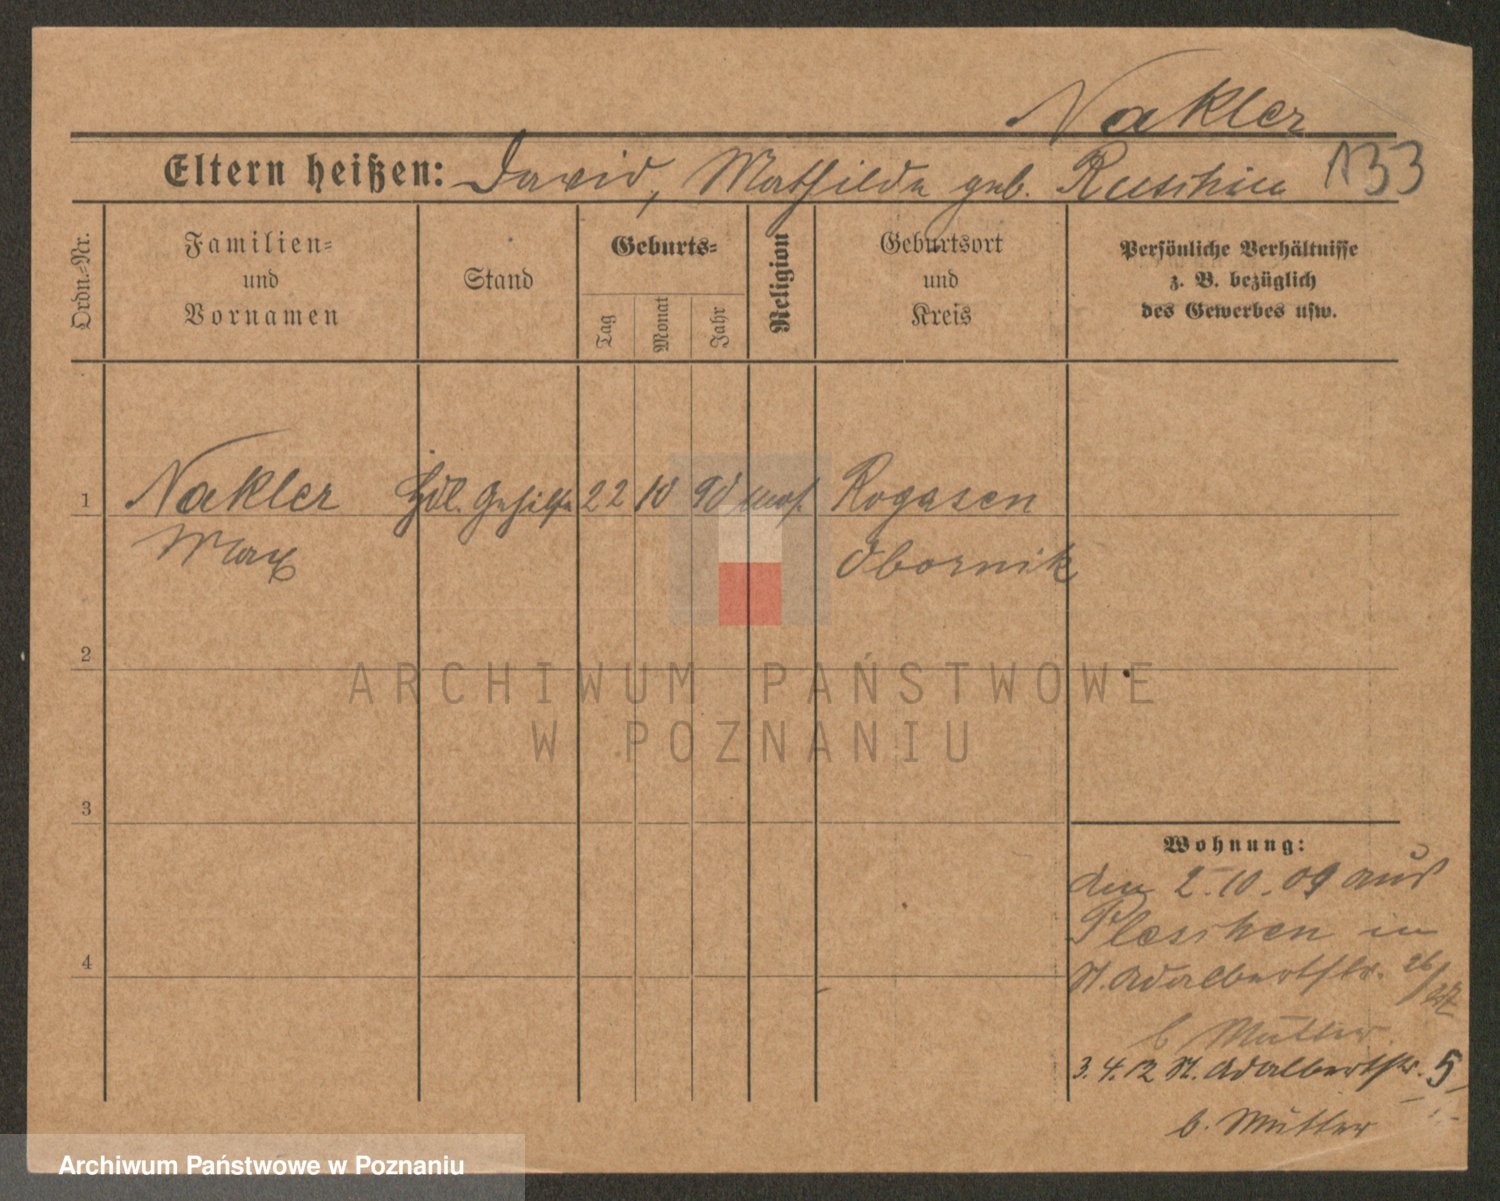 Nakler
Eltern heißen: David, Mathilde geb. 133
Ordn.-Nr.
Familien-
und
Vornamen
Stand
Geburts-
Tag
Monat
Jahr
Religion
Geburtsort
und
Kreis
Persönliche Verhältnisse
z. B. bezüglich
des Gewerbes usw.
1 Nakler Hdl. Gehilfe 22 10 90 mos. Rogasen
Max Obornik
2
ARCHIWUM PAŃSTWOWE
W POZNANIU
3
4
Wohnung:
den 2.10.09 aus
Pleschen in
St. Adalbertstr. 26/27
b Mutter.
3.4.12 St. Adalbertstr. 5
b. Mutter
Archiwum Państwowe w Poznaniu